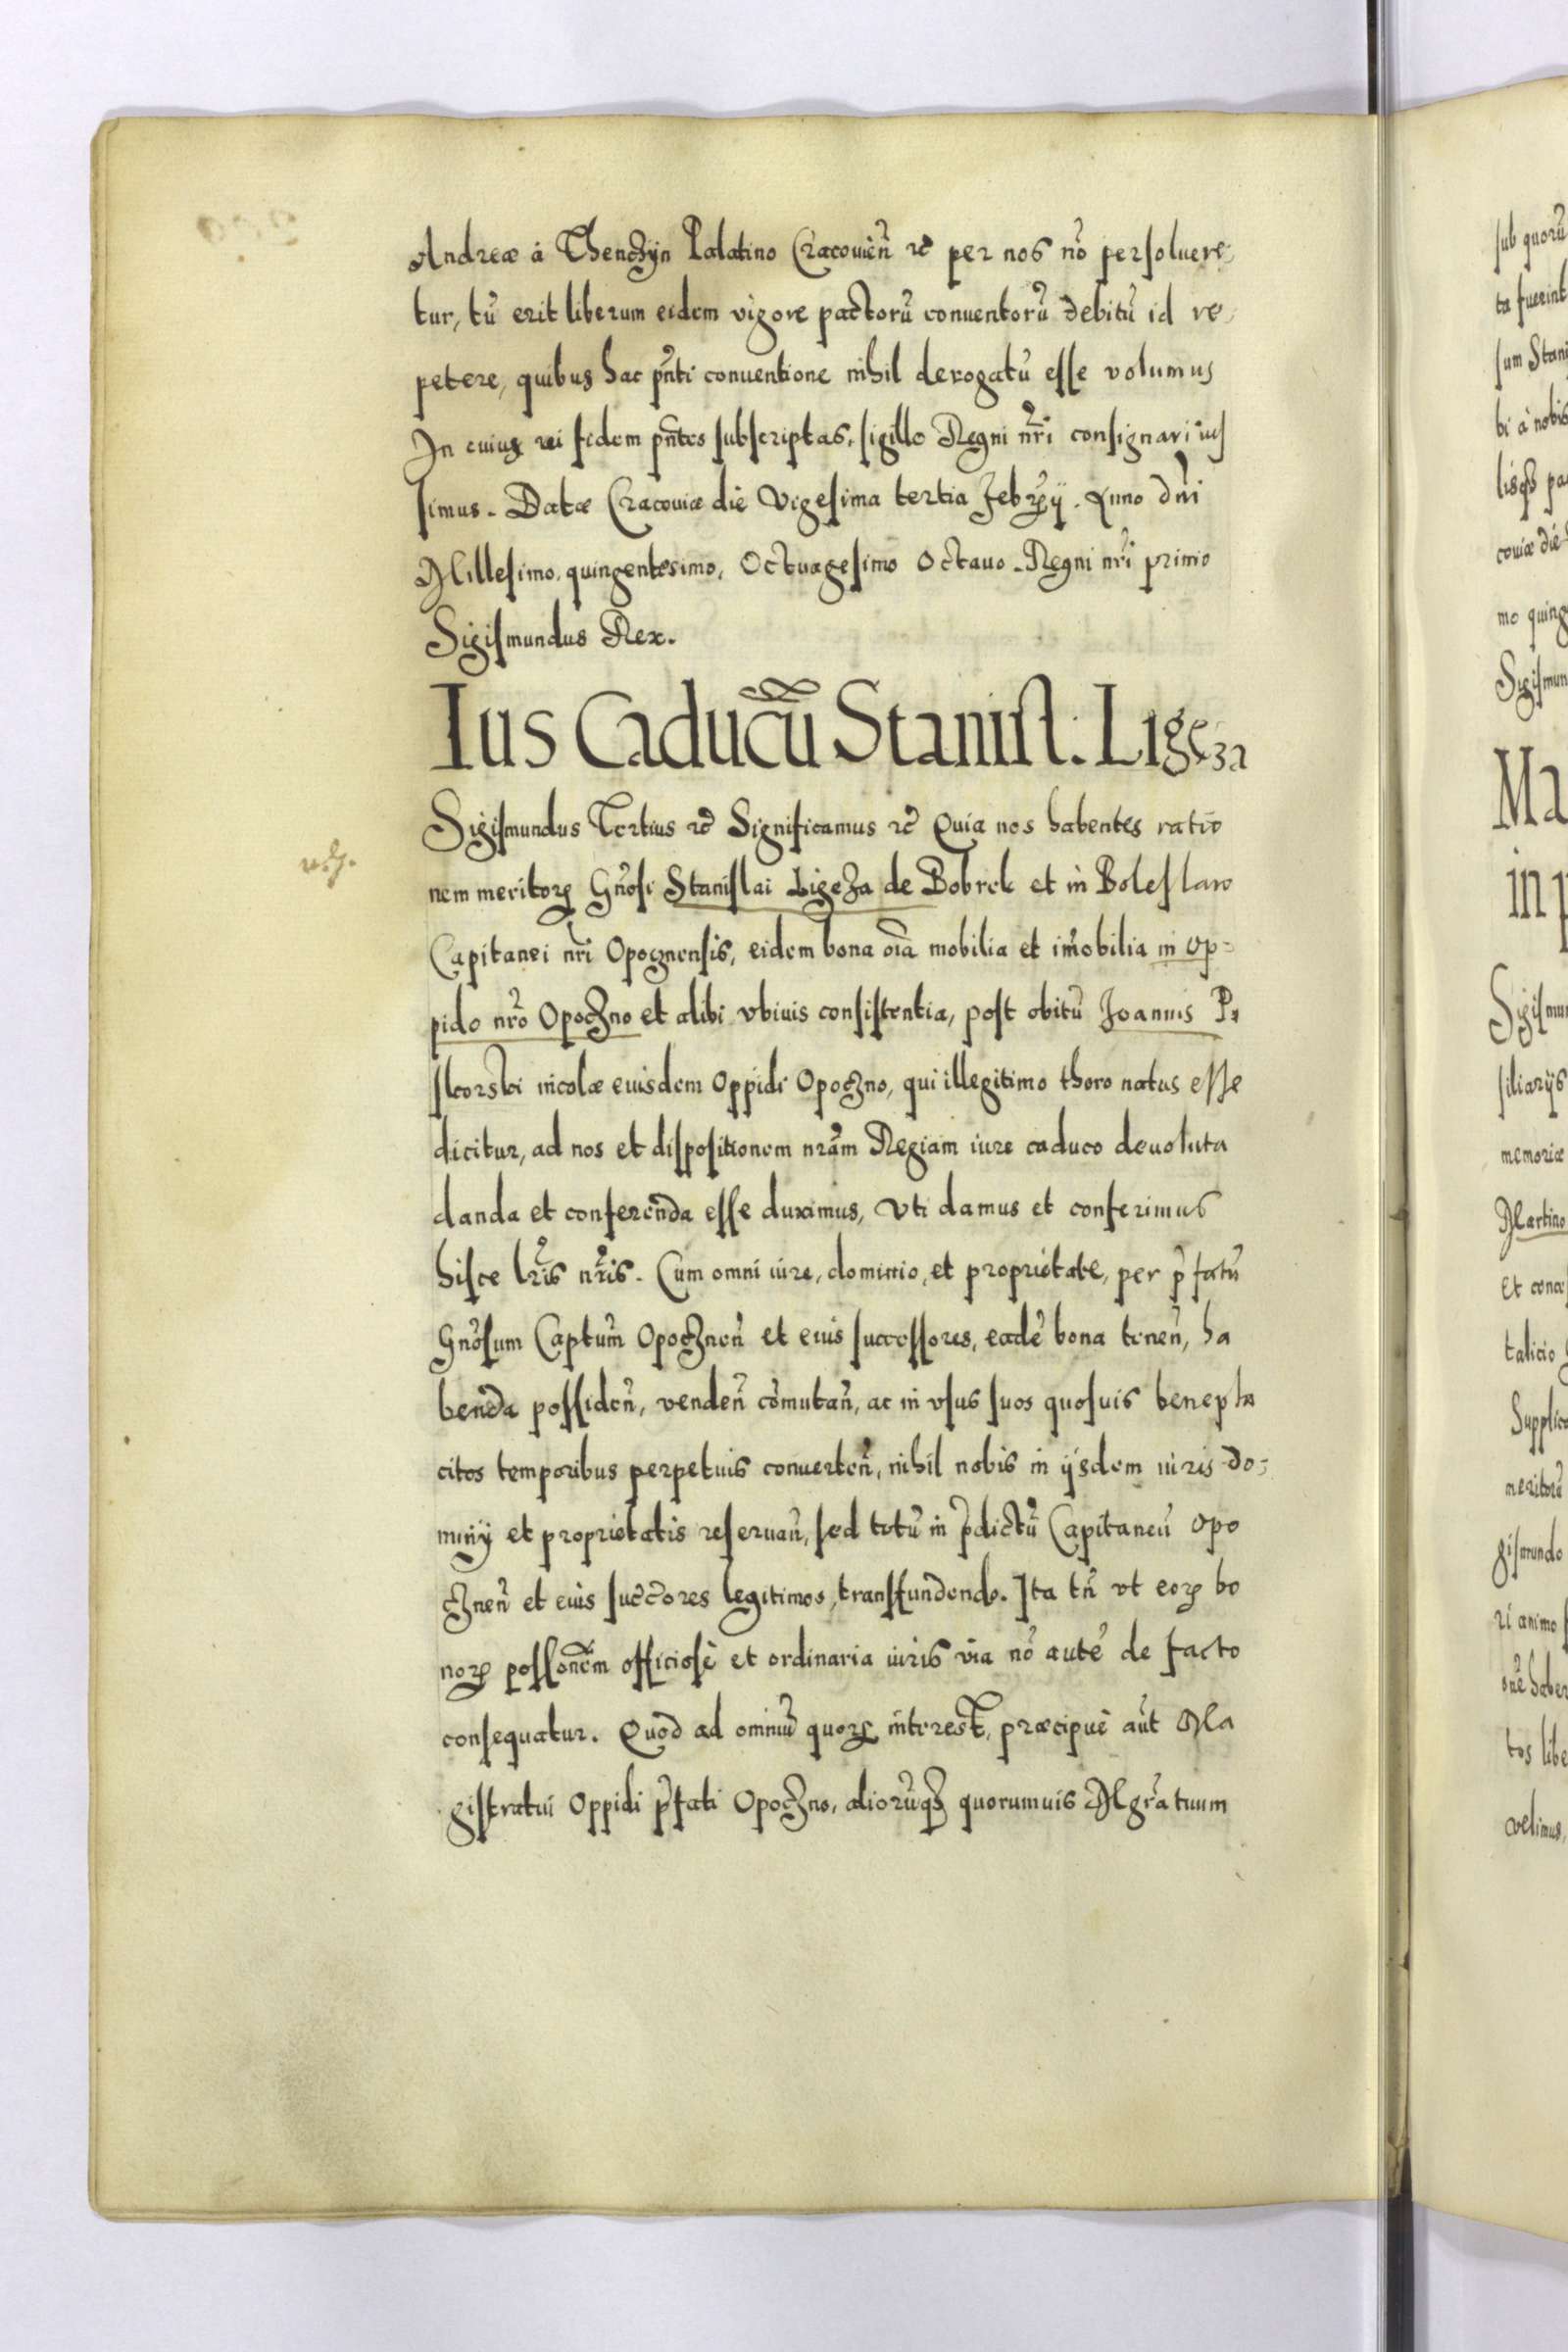 Andreæ à Thenczÿn Palatino Cracovieñ ꝛc̃ per nos nõ persoluere,
tur, tũ erit liberum eidem vigore pactorũ conuentorũ debitũ id re,
petere, quibus hac pñti conuentione nihil derogatũ esse volumus
In cuius rei fidem pñtes subscriptas, sigillo Regni nr̃i consignari ius
simus. Datæ Cracouiæ die Vigesima tertia Febrꝛij. Anno dñi
Millesimo, quingentesimo, Octuagesimo Octauo. Regni nr̃i primo
Sigismundus Rex.
Ius Caducũ Stanisl: Ligeza
Sigismundus Tertius ꝛc̃ Significamus ꝛc̃ Quia nos habentes ratio
nem meritoꝝ Gñosi Stanislai Ligeza de Bobrek et in Boleslaw
Capitanei nr̃i Opocznensis, eidem bona oĩa mobilia et im̃obilia in op=
pido nr̃o Opoczno et alibi vbiuis consistentia, post obitũ Joannis Pi
skorski incolæ euisdem Oppidi Opoczno, qui illegitimo thoro natus esse
dicitur, ad nos et dispositionem nr̃am Regiam iure caduco deuoluta
danda et conferenda esse duximus, Vti damus et conferimus
hisce lr̃is nr̃is. Cum omni iure, dominio, et proprietate, per p̃fatũ
Gñosum Captum̃ Opoczneñ et eius successores, eadẽ bona teneñ, ha
benda possideñ, vendeñ com̃utañ, ac in vsus suos quosuis benepla
citos temporibus perpetuis conuerteñ, nihil nobis in ijsdem iuris do=
minij et proprietatis reseruañ, sed totũ in p̃dictũ Capitaneũ Opo
czneñ et eius suc̃c̃ores legitimos, transfundendo. Ita tñ vt eoꝝ bo
noꝝ possonẽm officiosè et ordinaria iuris via nõ autẽ de facto
consequatur. Quod ad omniũ quoꝝ interest, præcipuè aũt Ma
gistratui Oppidi p̃fati Opoczno, aliorũqꝫ quorumuis Mgr̃atuum